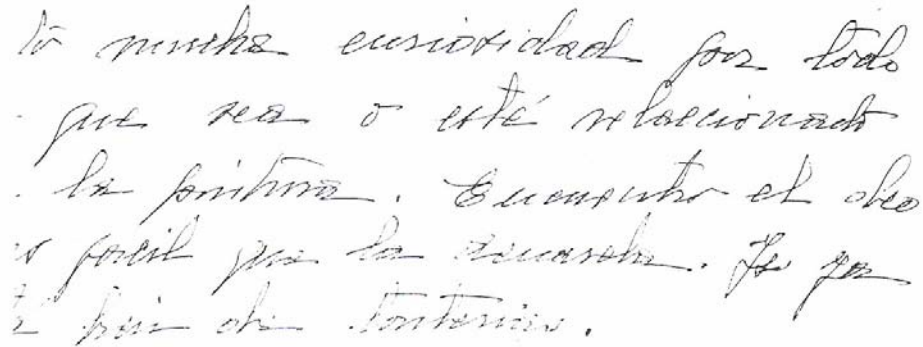 mucha curiosidad por todo
que sea o esté relacionado
la pintura. Encuentro el oleo
facil que la acuarela. Ya
bien de tonterias.